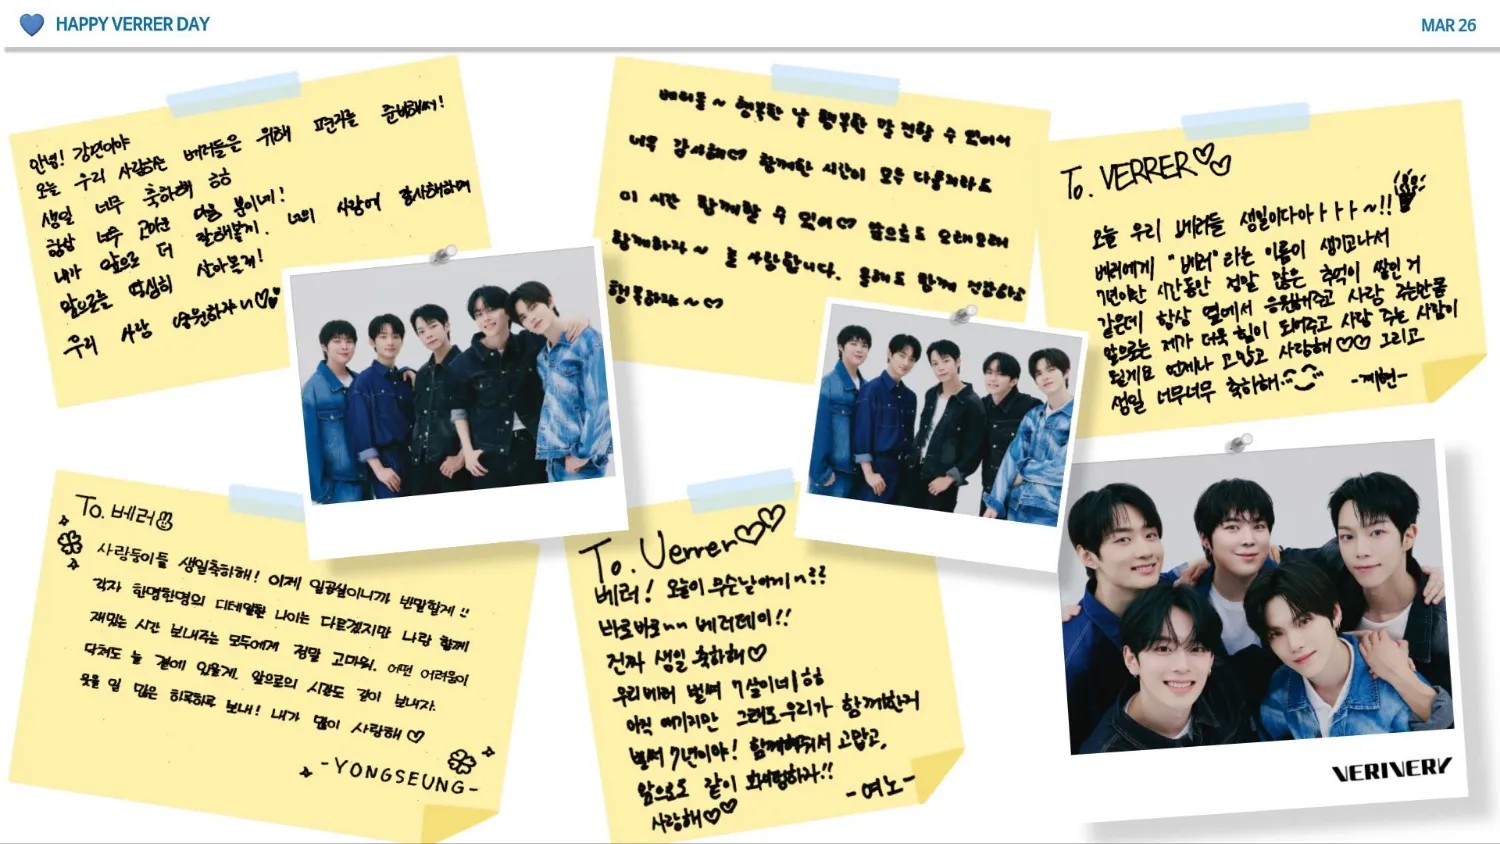 HAPPY VERRER DAY
MAR 26
안녕! 강민이야
오늘 우리 사랑하는 베러들을 위해 편지를 준비해써!
생일 너무 축하해 ㅎㅎ
항상 너무 고마운 마음 뿐이네!
내가 앞으로 더 잘해볼게. 너의 사랑에 감사해하며
앞으로를 열심히 살아볼게!
우리 사랑 영원하자ㅏ♡
베러들~ 행복한 날 행복한 말 전할 수 있어서
너무 감사해♡ 함께한 시간이 모두 다용지라도
이 시간 함께할 수 있어♡ 앞으로도 오래오래
함께하자~ 늘 사랑합니다. 올해도 함께 건강하고
행복하자~♡
To. VERRER♡♡
오늘 우리 베러들 생일이다아ㅏㅏㅏ~!!
베러에게 "베러"라는 이름이 생기고나서
7년이란 시간동안 정말 많은 추억이 쌓인 거
같은데 항상 옆에서 응원해주고 사랑 주는만큼
앞으로는 제가 더욱 힘이 되어주고 사랑 주는 사람이
될게요 언제나 고맙고 사랑해♡♡ 그리고
생일 너무너무 축하해..
-계현-
To. 베러
사랑둥이들 생일축하해! 이제 일곱살이니까 반말할게!!
각자 한명한명의 디테일한 나이는 다르겠지만 나랑 함께
재밌는 시간 보내주는 모두에게 정말 고마워. 어떤 어려움이
닥쳐도 늘 곁에 있을게. 앞으로의 시간도 같이 보내자.
웃을 일 많은 하루하루 보내! 내가 많이 사랑해♡
-YONGSEUNG-
To. Verrer♡♡
베러! 오늘이 무슨날이게~??
바로바로~~ 베러데이!!
진짜 생일 축하해♡
우리베러 벌써 7살이네ㅣㅎㅎ
아직 애기지만 그래도우리가 함께한지
벌써 7년이야! 함께해줘서 고맙고,
앞으로도 같이 화이팅하자!!
사랑해♡♡
-연호-
VERIVERY